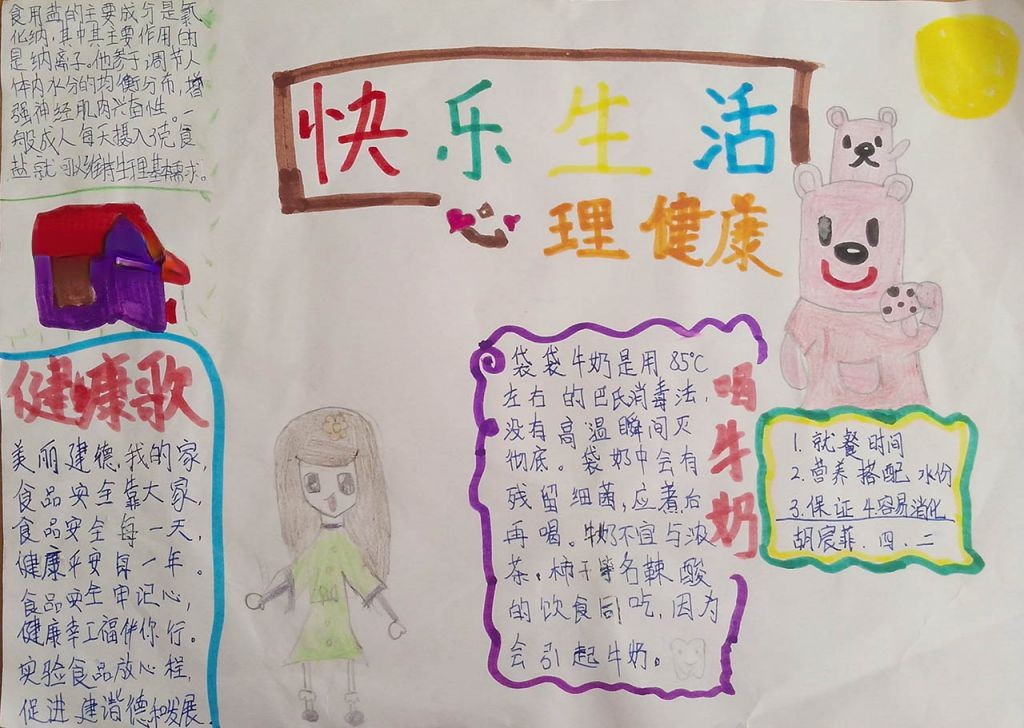 食用盐的主要成分是氯
化纳,其中其主要作用的
是纳离子。他参于调节人
体内水分的均衡分布,增
强神经肌肉兴奋性。一
般成人每天摄入3克食
盐就可以维持生理基本需求。
快乐生活
心理健康
健康歌
美丽建德,我的家,
食品安全靠大家,
食品安全每一天,
健康平安每一年。
食品安全牢记心,
健康幸福伴你行。
实验食品放心程,
促进建谐德和发展
喝牛奶
袋袋牛奶是用85℃
左右的巴氏消毒法,
没有高温瞬间灭
彻底。袋奶中会有
残留细菌,应煮后
再喝。牛奶不宜与浓
茶,柿子等名辣酸
的饮食同吃,因为
会引起牛奶。
1.就餐时间
2.营养搭配水份
3.保证牛容易消化
胡宸菲.四.二